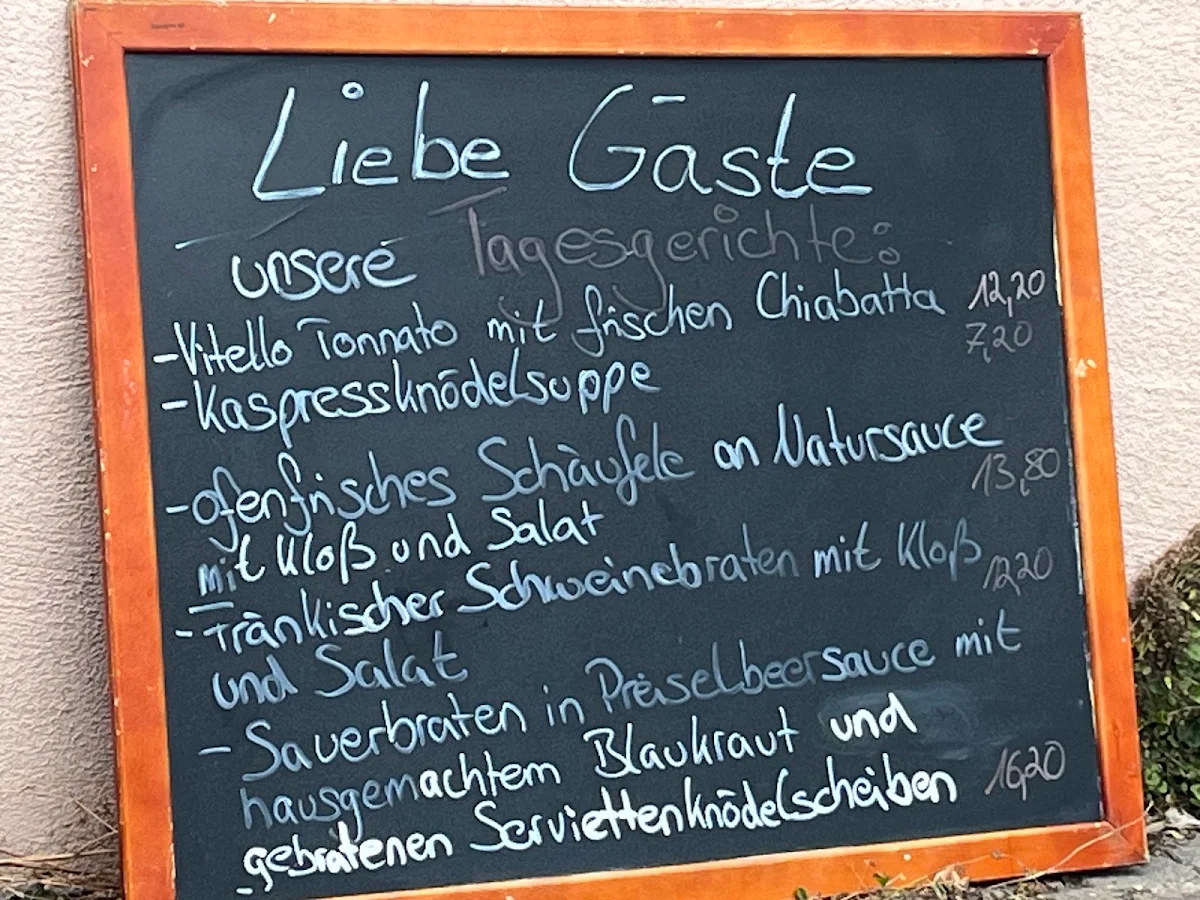 Liebe Gäste
unsere Tagesgerichte:
-Vitello Tonnato mit frischen Chiabatta 12,20
-Kaspressknödelsuppe 7,20
-ofenfrisches Schäufele an Natursauce
mit Kloß und Salat 13,80
-Fränkischer Schweinebraten mit Kloß 12,20
und Salat
- Sauerbraten in Preiselbeersauce mit
hausgemachtem Blaukraut und
gebratenen Serviettenknödelscheiben 16,20